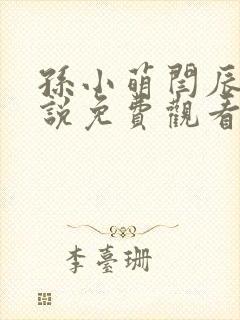 孫小萌閆辰
說免費觀看
李臺珊